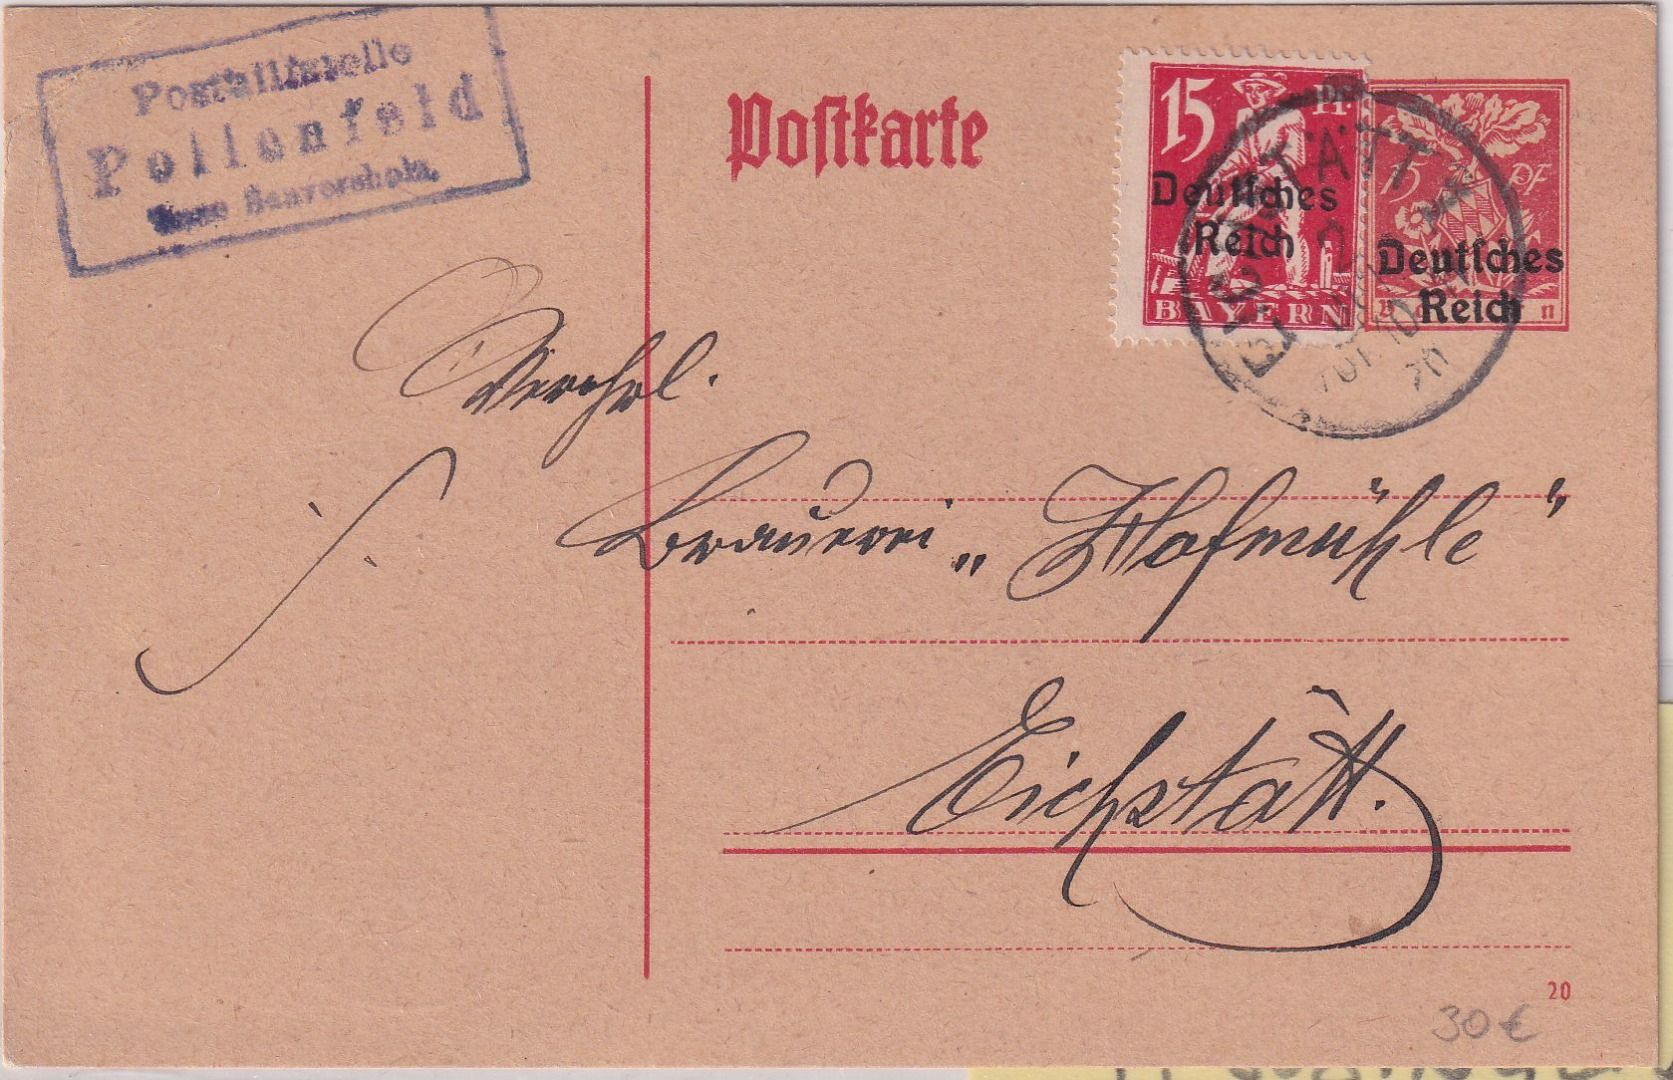 Posthilfstelle
Pollenfeld
Postkarte
15 Pf.
Deutsches
Reich
BAYERN
15 PF
Deutsches
Reich
EICHSTÄTT
Verehrl.
Brauerei „Hofmühle“
Eichstätt.
20
30 €